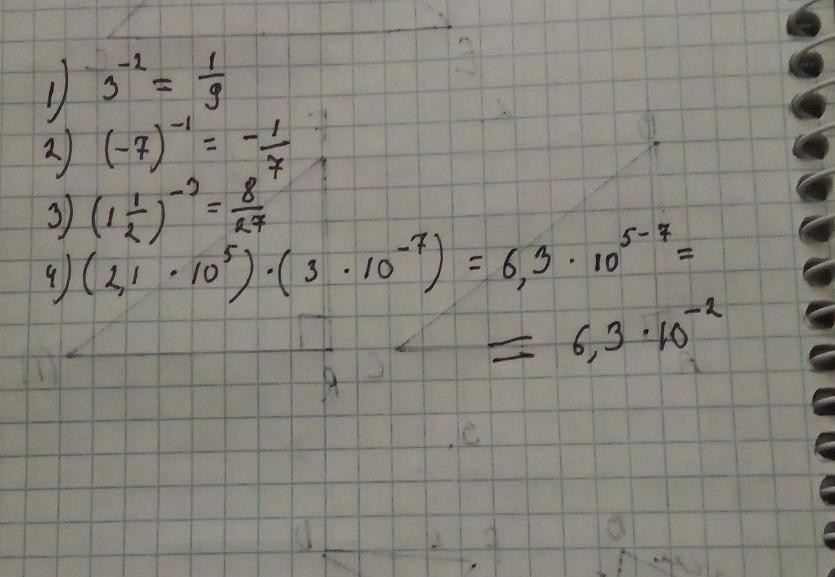 1) 3⁻² = 1/9
2) (-7)⁻¹ = -1/7
3) (1 1/2)⁻³ = 8/27
4) (2,1 · 10⁵) · (3 · 10⁻⁷) = 6,3 · 10⁵⁻⁷ =
= 6,3 · 10⁻²